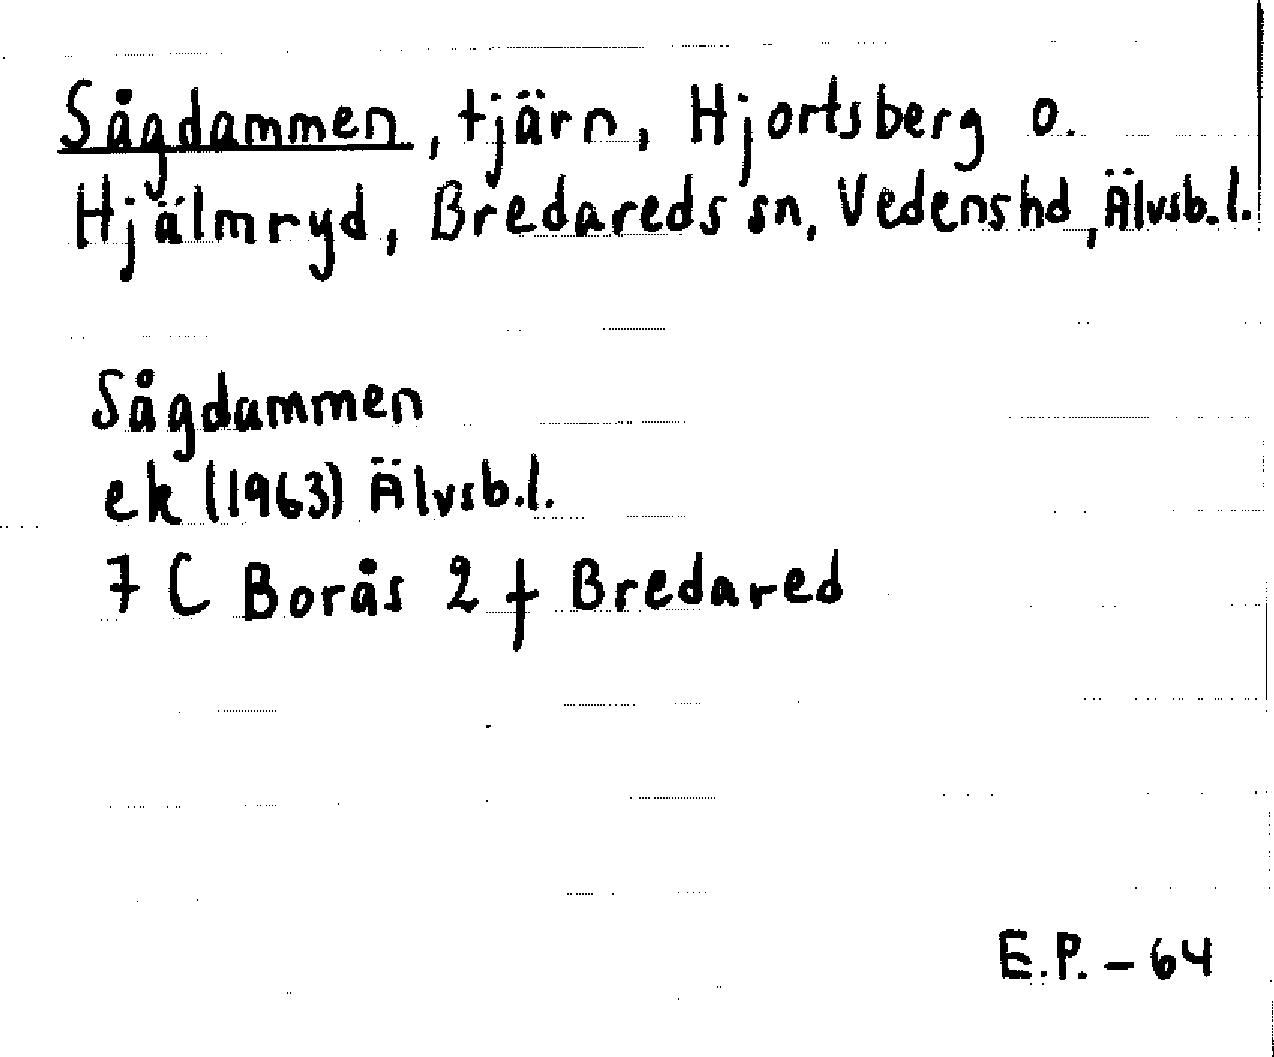 Sågdammen, tjärn, Hjortsberg o.
Hjälmryd, Bredareds sn, Vedens hd, Älvsb. l.
Sågdammen
ek (1963) Älvsb. l.
7 C Borås 2 f Bredared
E.P. - 64